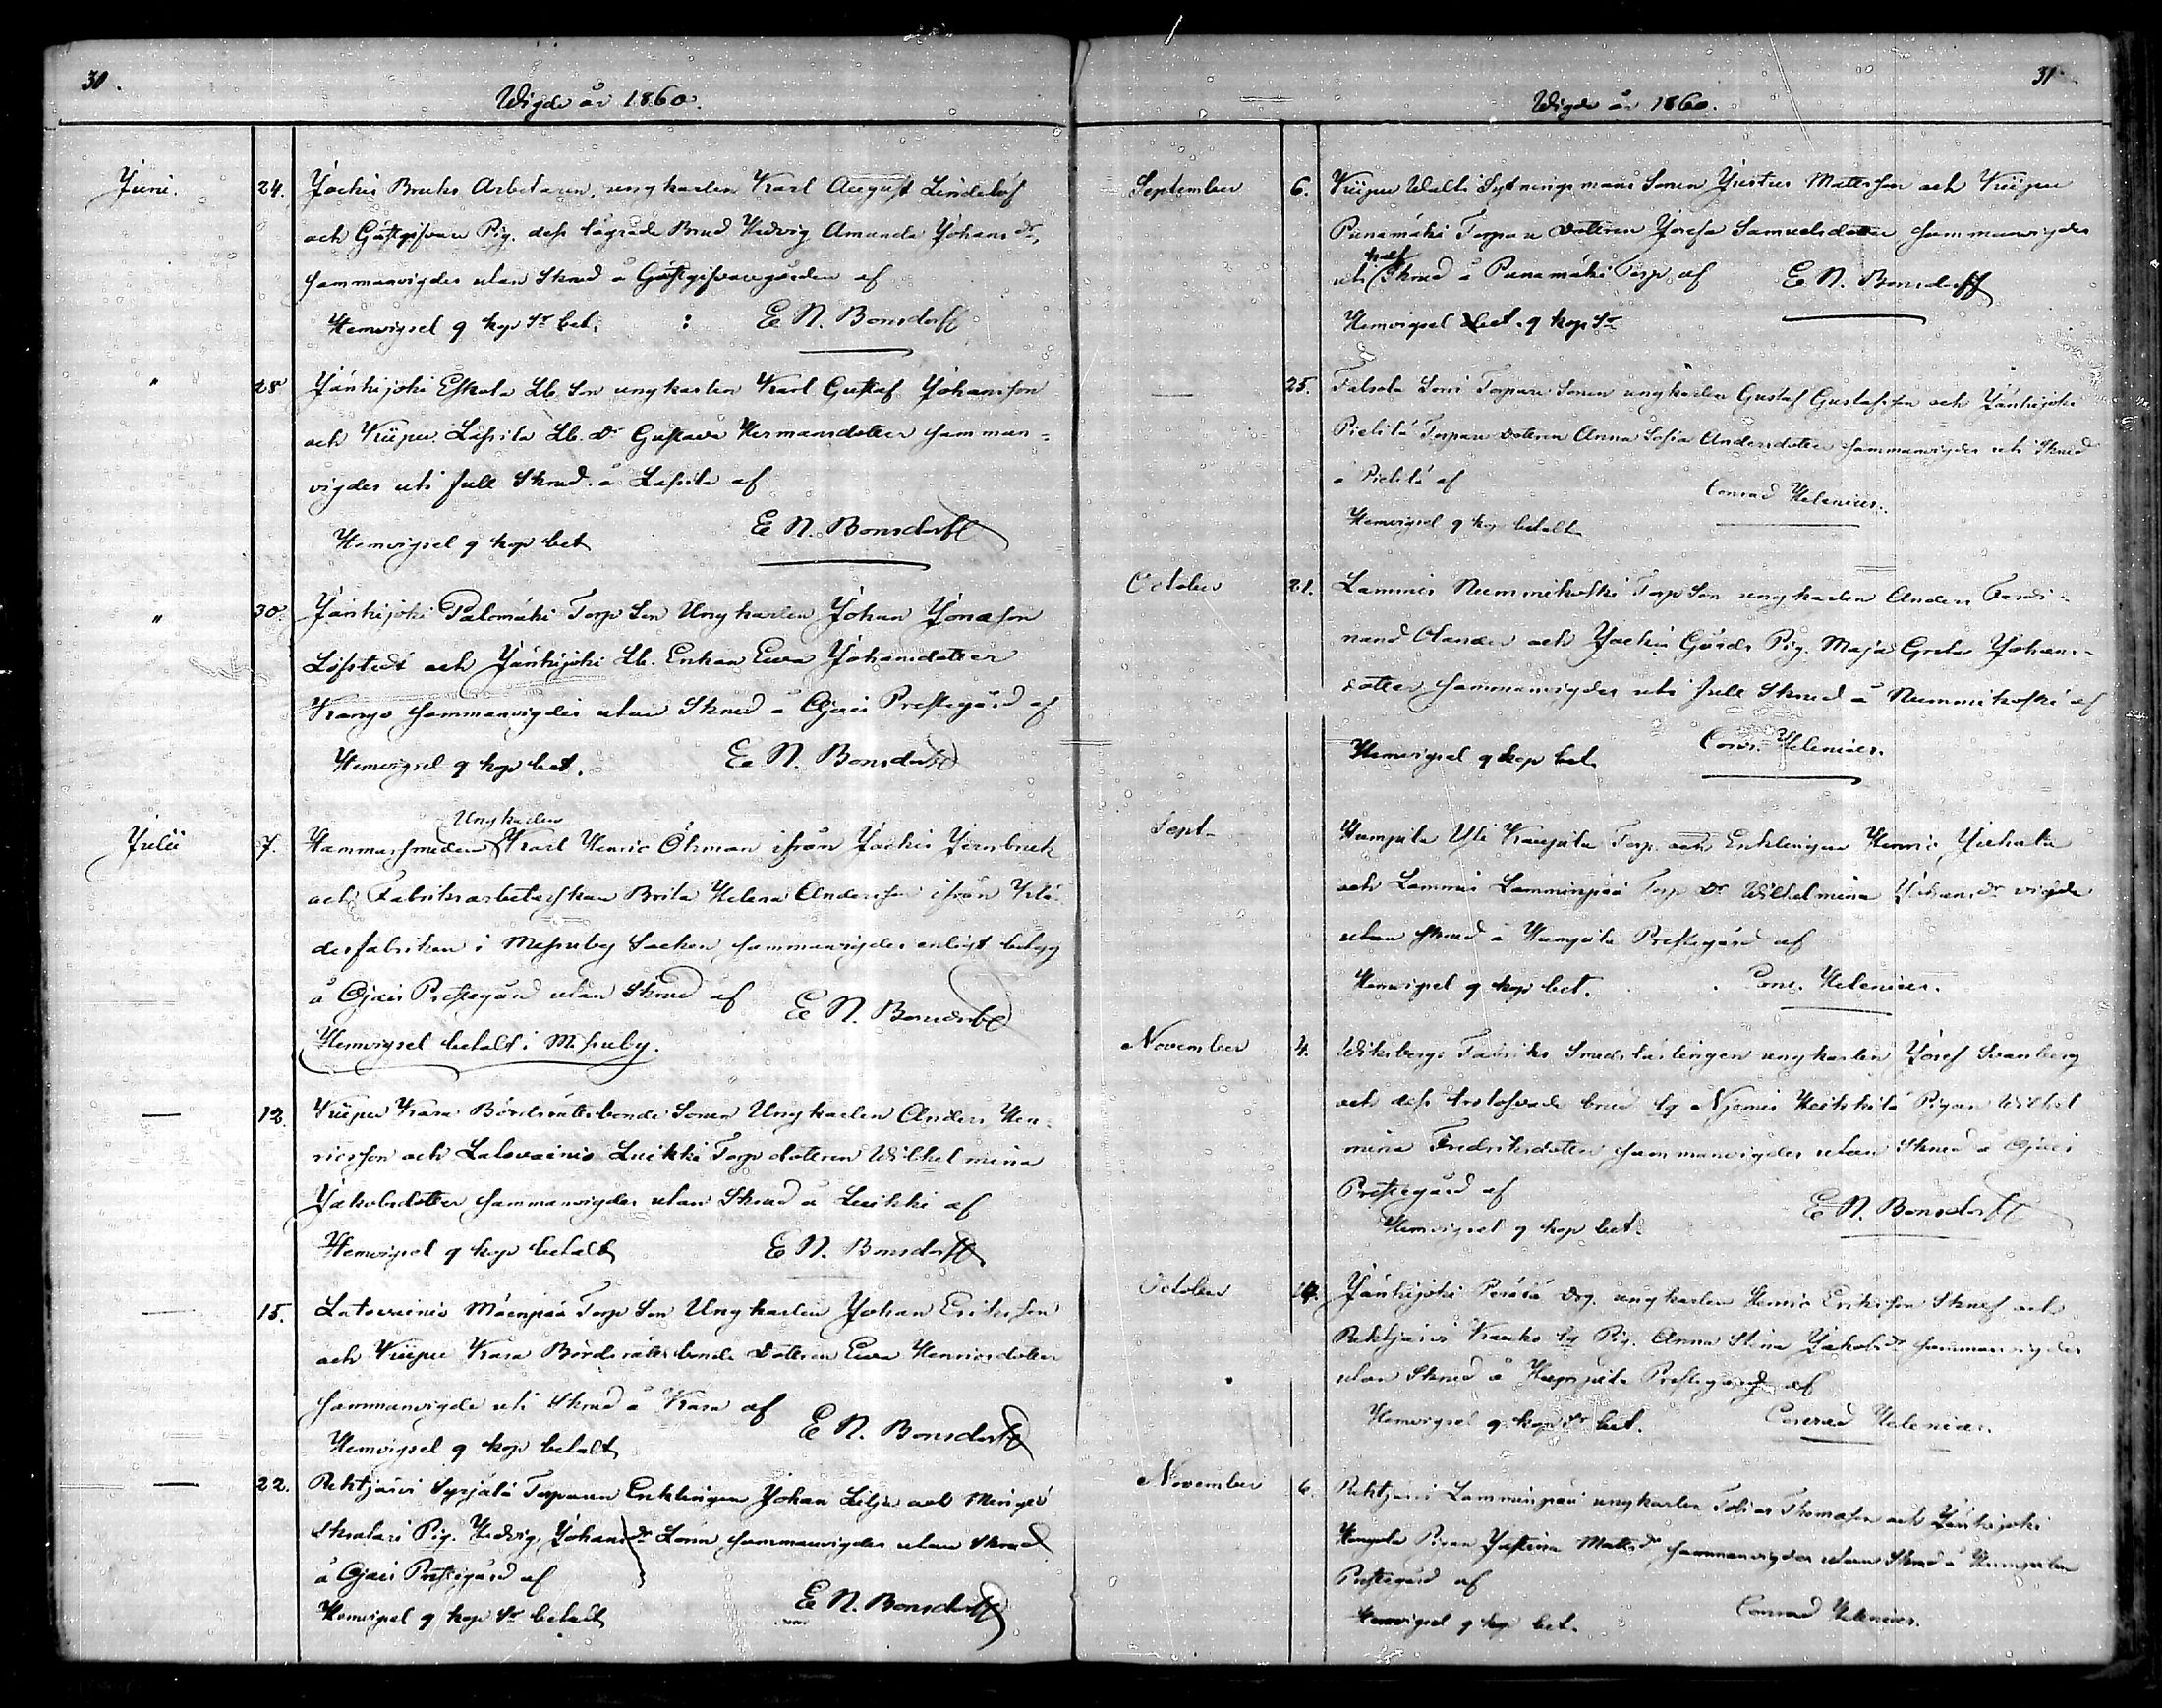 30.
Wigde år 1860.
Juni. 24. Jockis Bruks Arbetaren, ungkarlen Karl August Lindelöf
och Gästgifvare Pig. dess lägrade Brud Hedvig Amanda Johansdr,
sammanvigdes utan Skrud å Gästgifvaregården af
Hemvigsel 9 kop Sr bet. E N. Bonsdorff
" 28 Jänhijoki Eskola Lb. Son ungkarlen Karl Gustaf Johansson
och Kiipu Lassila Lb. Dr Gustava Hermansdotter samman=
vigdes uti full Skrud å Lassila af
Hemvigsel 9 kop bet E N. Bonsdorff
" 30. Jänhijoki Palomäki Torp Son Ungkarlen Johan Jonasson
Löfstedt och Jänhijoki Lb. Enkan Ewa Johansdotter
Krango sammanvigdes utan Skrud å Ojais Prestegård af
Hemvigsel 9 kop bet. E N. Bonsdorff
Ungkarlen
Julii 7. Hammarsmeden Karl Henric Öhman ifrån Jockis Jernbruk
och Fabriksarbeterskan Brita Helena Andersson ifrån Klä-
desfabriken i Messuby Socken sammanvigdes enligt betyg
å Ojais Prestegård utan Skrud af E N. Bonsdorff
Hemvigsel betalt i Messuby.
— 12. Kiipu Kara Bördsrättsbonde Sonen Ungkarlen Anders Hen-
ricsson och Latovainio Luikki Torp dottren Wilhelmina
Jakobsdotter sammanvigdes utan Skrud å Luikki af
Hemvigsel 9 kop betalt E N. Bonsdorff
— 15. Latovainio Mäenpää Torp Son Ungkarlen Johan Eriksson
och Kiipu Kara Bördsrättsbonde Dottren Ewa Henricsdotter
sammanvigde uti Skrud å Kara af
Hemvigsel 9 kop betalt E N. Bonsdorff
— 22. Rehtjärvi Syrjälä Torparen Enklingen Johan Lilja och Mingiö
Skralari Pig. Hedvig Johansdr Lönn sammanvigdes utan Skrud
å Ojais Prestegård af
Hemvigsel 9 kop Sr betalt E N. Bonsdorff
31.
Wigde år 1860.
September 6. Kiipu Walli Sytningsmans Sonen Justus Mattsson och Kiipu
Punamäki Torpare Dottren Josefa Samuelsdotter sammanvigdes
half
uti Skrud å Punamäki Torp af E N. Bonsdorff
Hemvigsel bet. 9 kop Sr
— 25. Talsola Torpare Sonen ungkarlen Gustaf Gustafsson och Jänhijoki
Pietilä Torpare dottren Anna Sofia Andersdotter sammanvigdes uti Skrud
å Pietilä af Conrad Helenius.
Hemvigsel 9 kop betalt
October 21. Lammis Nummikoski Torp Son ungkarlen Anders Ferdi-
nand Olander och Jockis Gårds Pig. Maja Greta Johans-
dotter sammanvigdes uti full Skrud å Nummikoski af
Hemvigsel 9 kop bet. Conr. Helenius.
Sept. Humpila Yli Torp Enklingen Henric
och Lammis Lamminpää Torp Dr Wilhelmina Johansdr vigde
utan skrud å Humpila Prestegård af
Hemvigsel 9 kop bet. Conr. Helenius.
November 4. Wiksbergs Fabriks Smedslärlingen ungkarlen Josef Svanberg
och dess trolofvade brud Njemis Heikkilä Pigan Wilhel
mina Fredriksdotter sammanvigdes utan Skrud å Ojais
Prestegård af
Hemvigsel 9 kop bet. E N. Bonsdorff
October 14. Jänhijoki Perälä Drg. ungkarlen Henric Eriksson och
Rehtjärvi Kauko Pig. Anna Stina Jakobsdr sammanvigdes
utan Skrud å Humpila Prestegård af
Hemvigsel 9 kop Sr bet. Conrad Helenius.
November 6. Rehtjärvi Lamminpää ungkarlen Tobias Thomasson och Jänhijoki
Pigan Justina Mattsdr sammanvigdes utan Skrud å Humpila
Prestegård af
Hemvigsel 9 kop bet. Conrad Helenius.